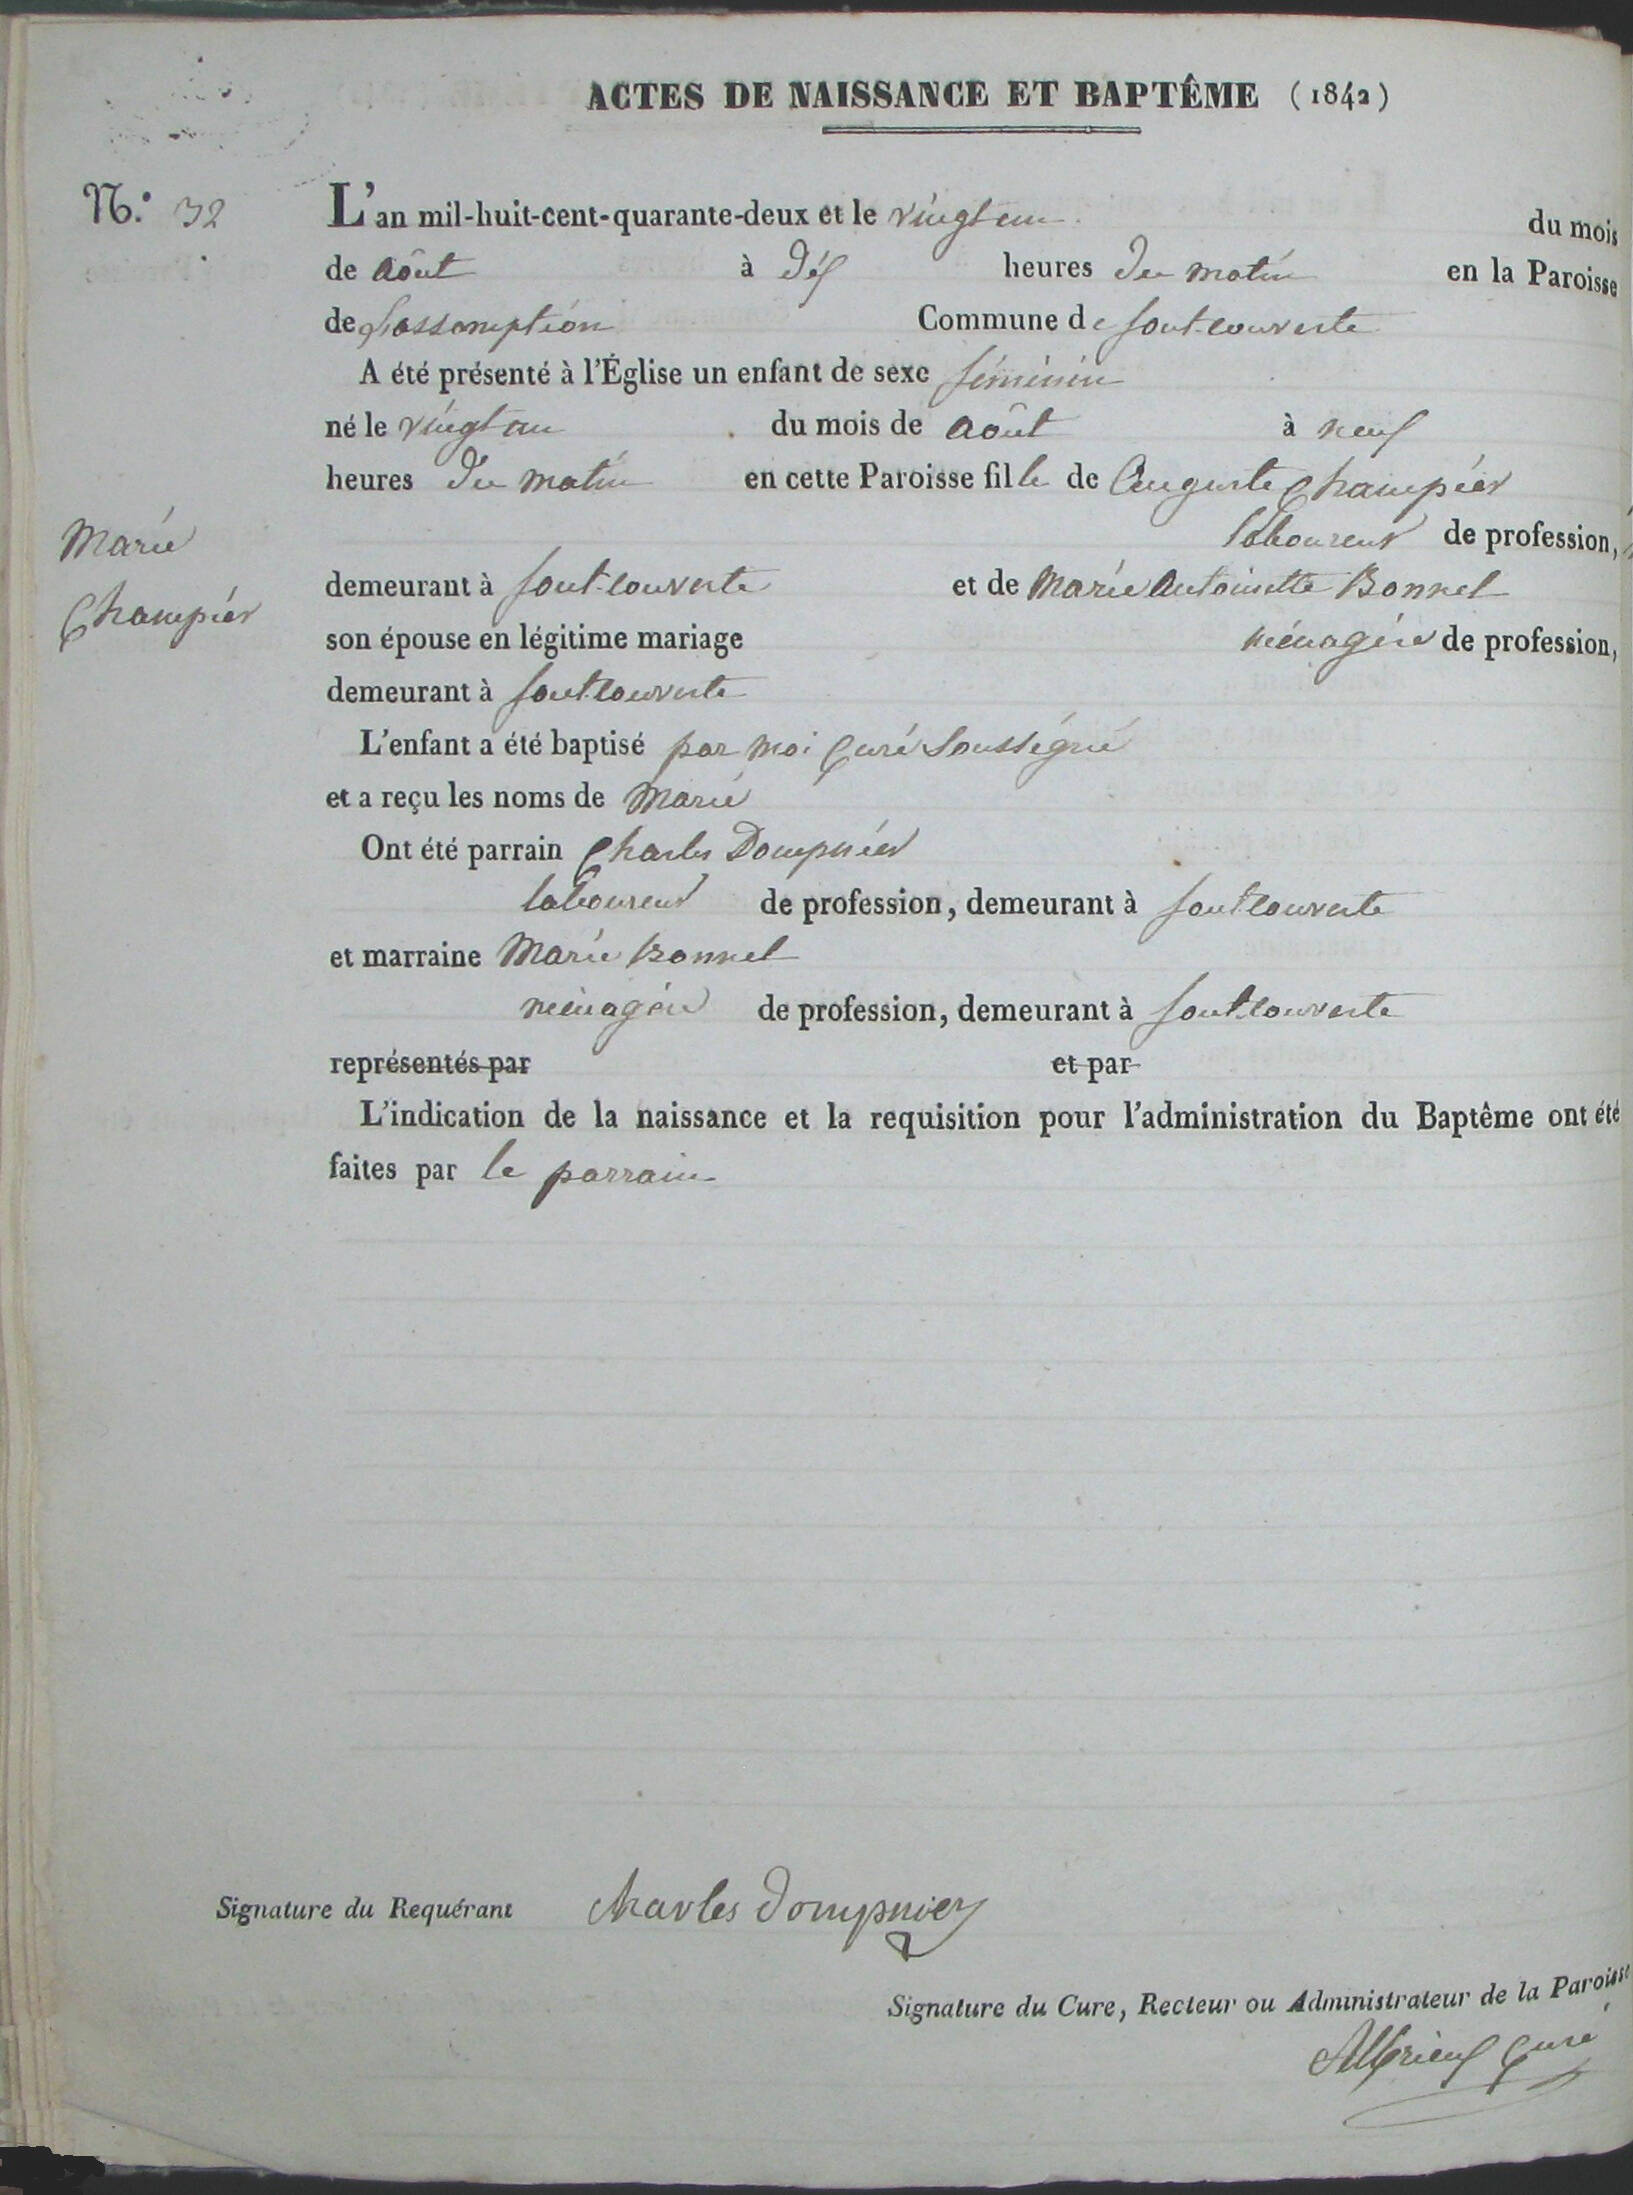 ACTES DE NAISSANCE ET BAPTÊME (1842)
N.° 32
L'an mil-huit-cent-quarante-deux et le vingt un du mois
de Août à dix heures du matin en la Paroisse
de L'assomption Commune de font-couverte
A été présenté à l'Église un enfant de sexe féminin
né le vingt un du mois de Août à neuf
heures du matin en cette Paroisse fille de Auguste Champier
laboureur de profession,
Marie
Champier
demeurant à font-couverte et de Marie Antoinette Bonnel
son épouse en légitime mariage ménagère de profession,
demeurant à fontcouverte
L'enfant a été baptisé par moi Curé Soussigné
et a reçu les noms de Marie
Ont été parrain Charles Dompnier
laboureur de profession, demeurant à fontcouverte
et marraine Marie Bonnel
ménagère de profession, demeurant à fontcouverte
représentés par et par
L'indication de la naissance et la requisition pour l'administration du Baptême ont été
faites par le parrain
Signature du Requérant Charles Dompnier
Signature du Cure, Recteur ou Administrateur de la Paroisse
Curé